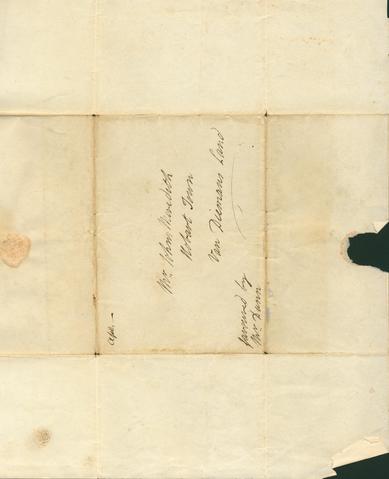 Mr. John Meredith
Hobart Town
Van Diemans Land
favoured by
Mr Dunn